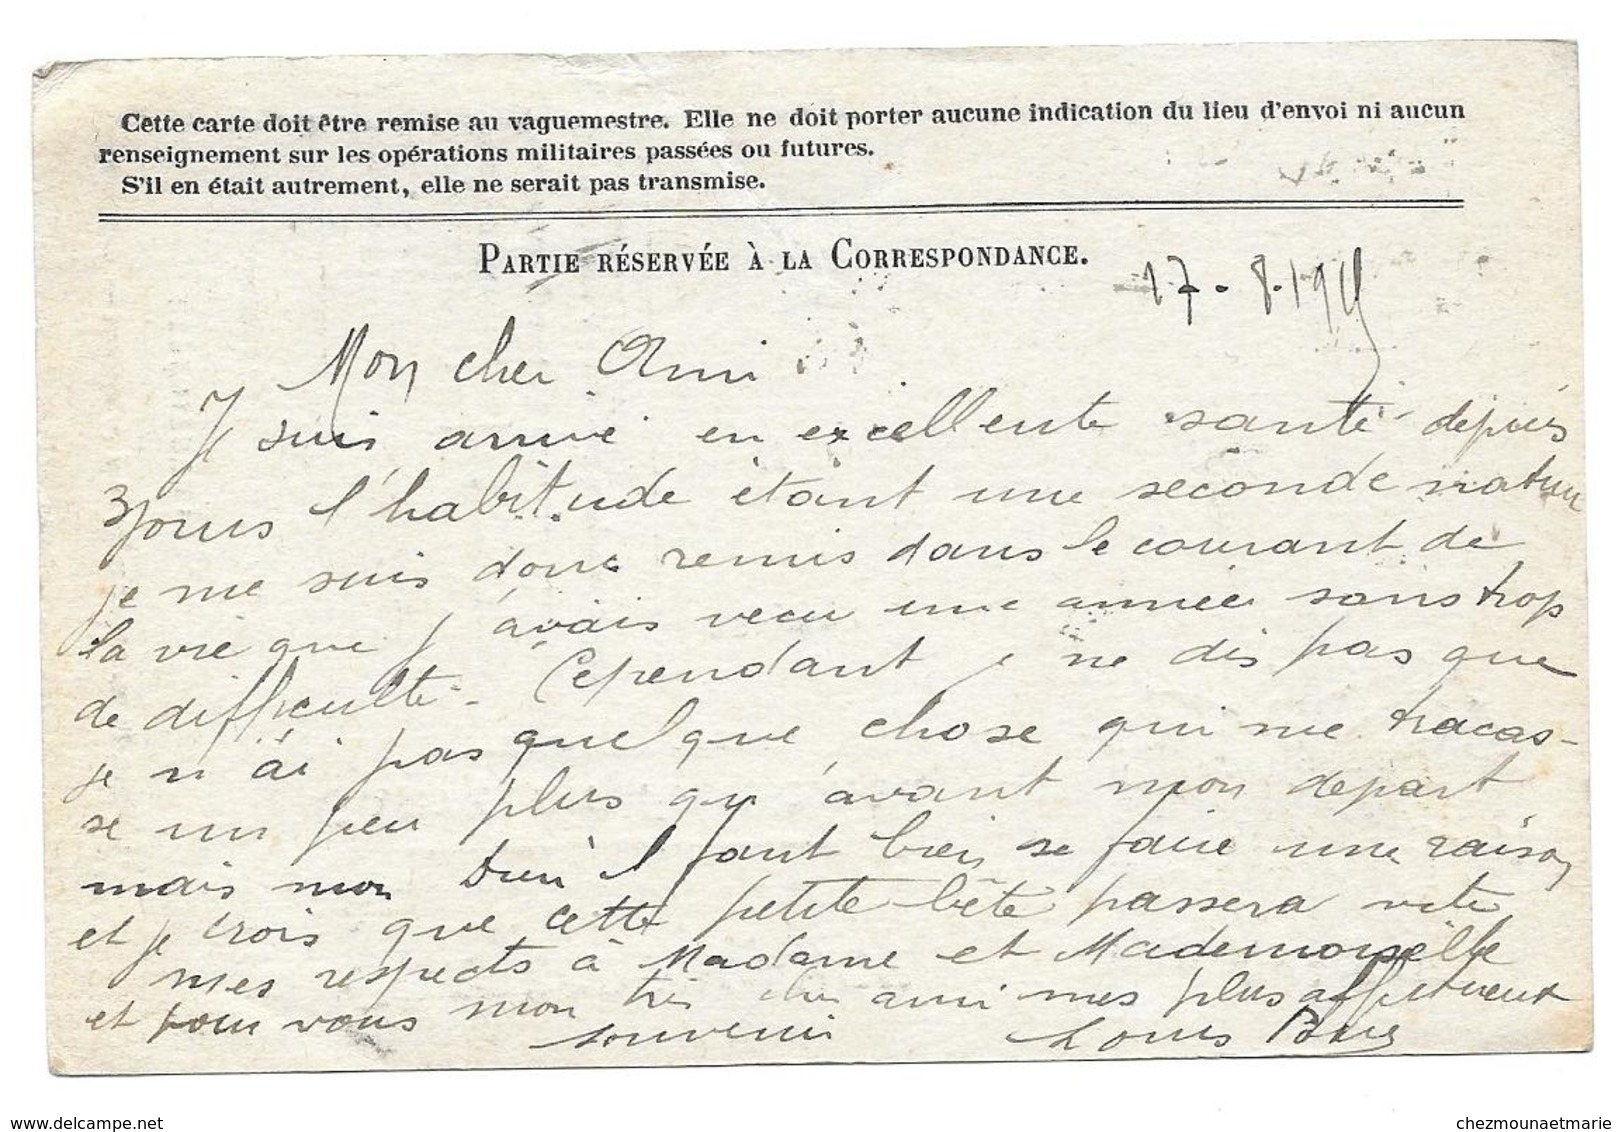 Cette carte doit être remise au vaguemestre. Elle ne doit porter aucune indication du lieu d'envoi ni aucun
renseignement sur les opérations militaires passées ou futures.
S'il en était autrement, elle ne serait pas transmise.
PARTIE RÉSERVÉE À LA CORRESPONDANCE.
17-8-1915
Mon cher Ami
Je suis arrivé en excellente santé depuis
3 jours l'habitude étant une seconde nature
je me suis donc remis dans le courant de
la vie que j'avais vecu une année sans trop
de difficulté. Cependant je ne dis pas que
je n'ai pas quelque chose qui me tracas-
se un peu plus qu'avant mon depart
mais mon Dieu il faut bien se faire une raison
et je crois que cette petite bête passera vite
mes respects à Madame et Mademoiselle
et pour vous mon très cher ami mes plus affectueux
souvenir Louis
delcampe.net
chezmounaetmarie